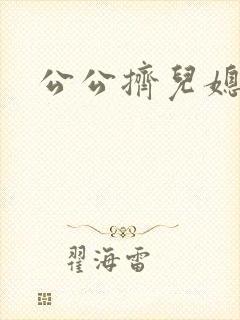 公公擠兒媳
翟海雷